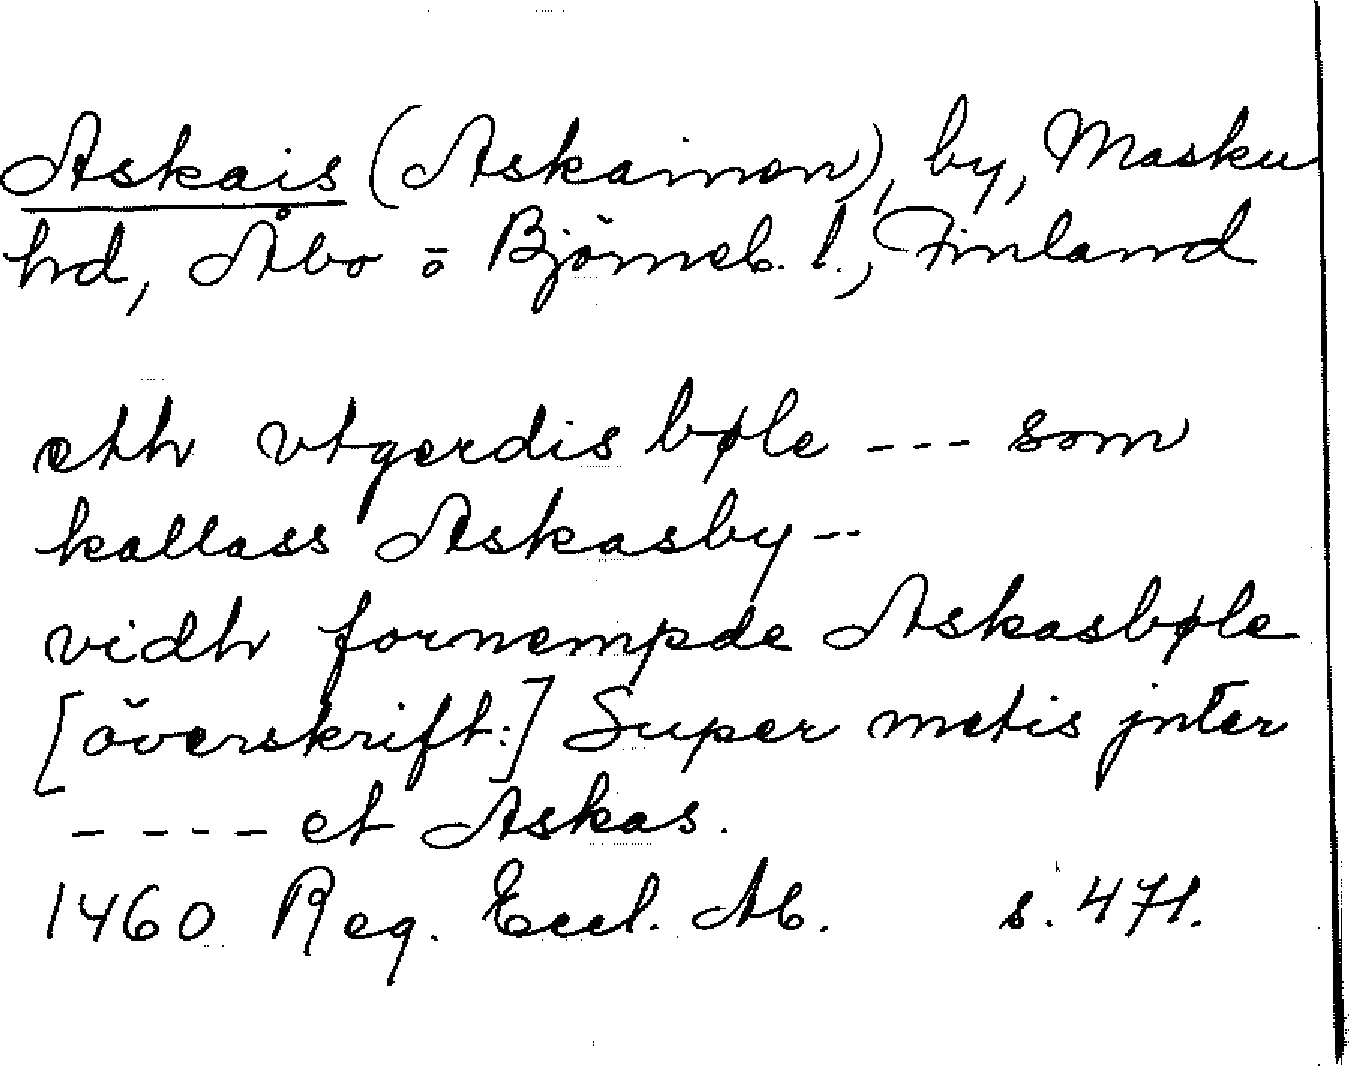 Askais (Askainen), by, Masku
hd, Åbo o. Björneb. l., Finland
eth vtgerdis bøle --- som
kallass Askasby --
vidh fornempde Askasbøle
[överskrift:] Super metis jnter
---- et Askas.
1460 Reg. Eccl. Ab. s. 471.